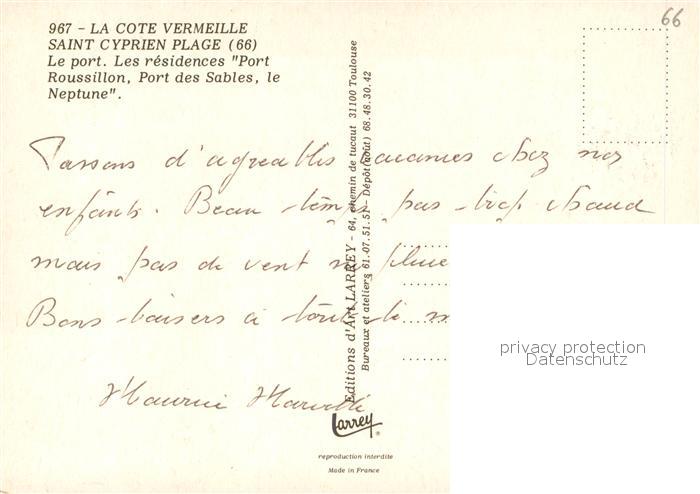 66
967 - LA COTE VERMEILLE
SAINT CYPRIEN PLAGE (66)
Le port. Les résidences "Port
Roussillon, Port des Sables, le
Neptune".
Passons d'agréables vacances chez nos
enfants. Beau temps pas trop chaud
mais pas de vent ni pluie
Bons baisers à toute la
Maurice
Editions d'Art LARREY - 64, chemin de tucaut 31100 Toulouse
Bureaux et ateliers 61.07.51.51 - Dépôt (août) 68.48.30.42
Larrey
reproduction interdite
Made in France
privacy protection
Datenschutz